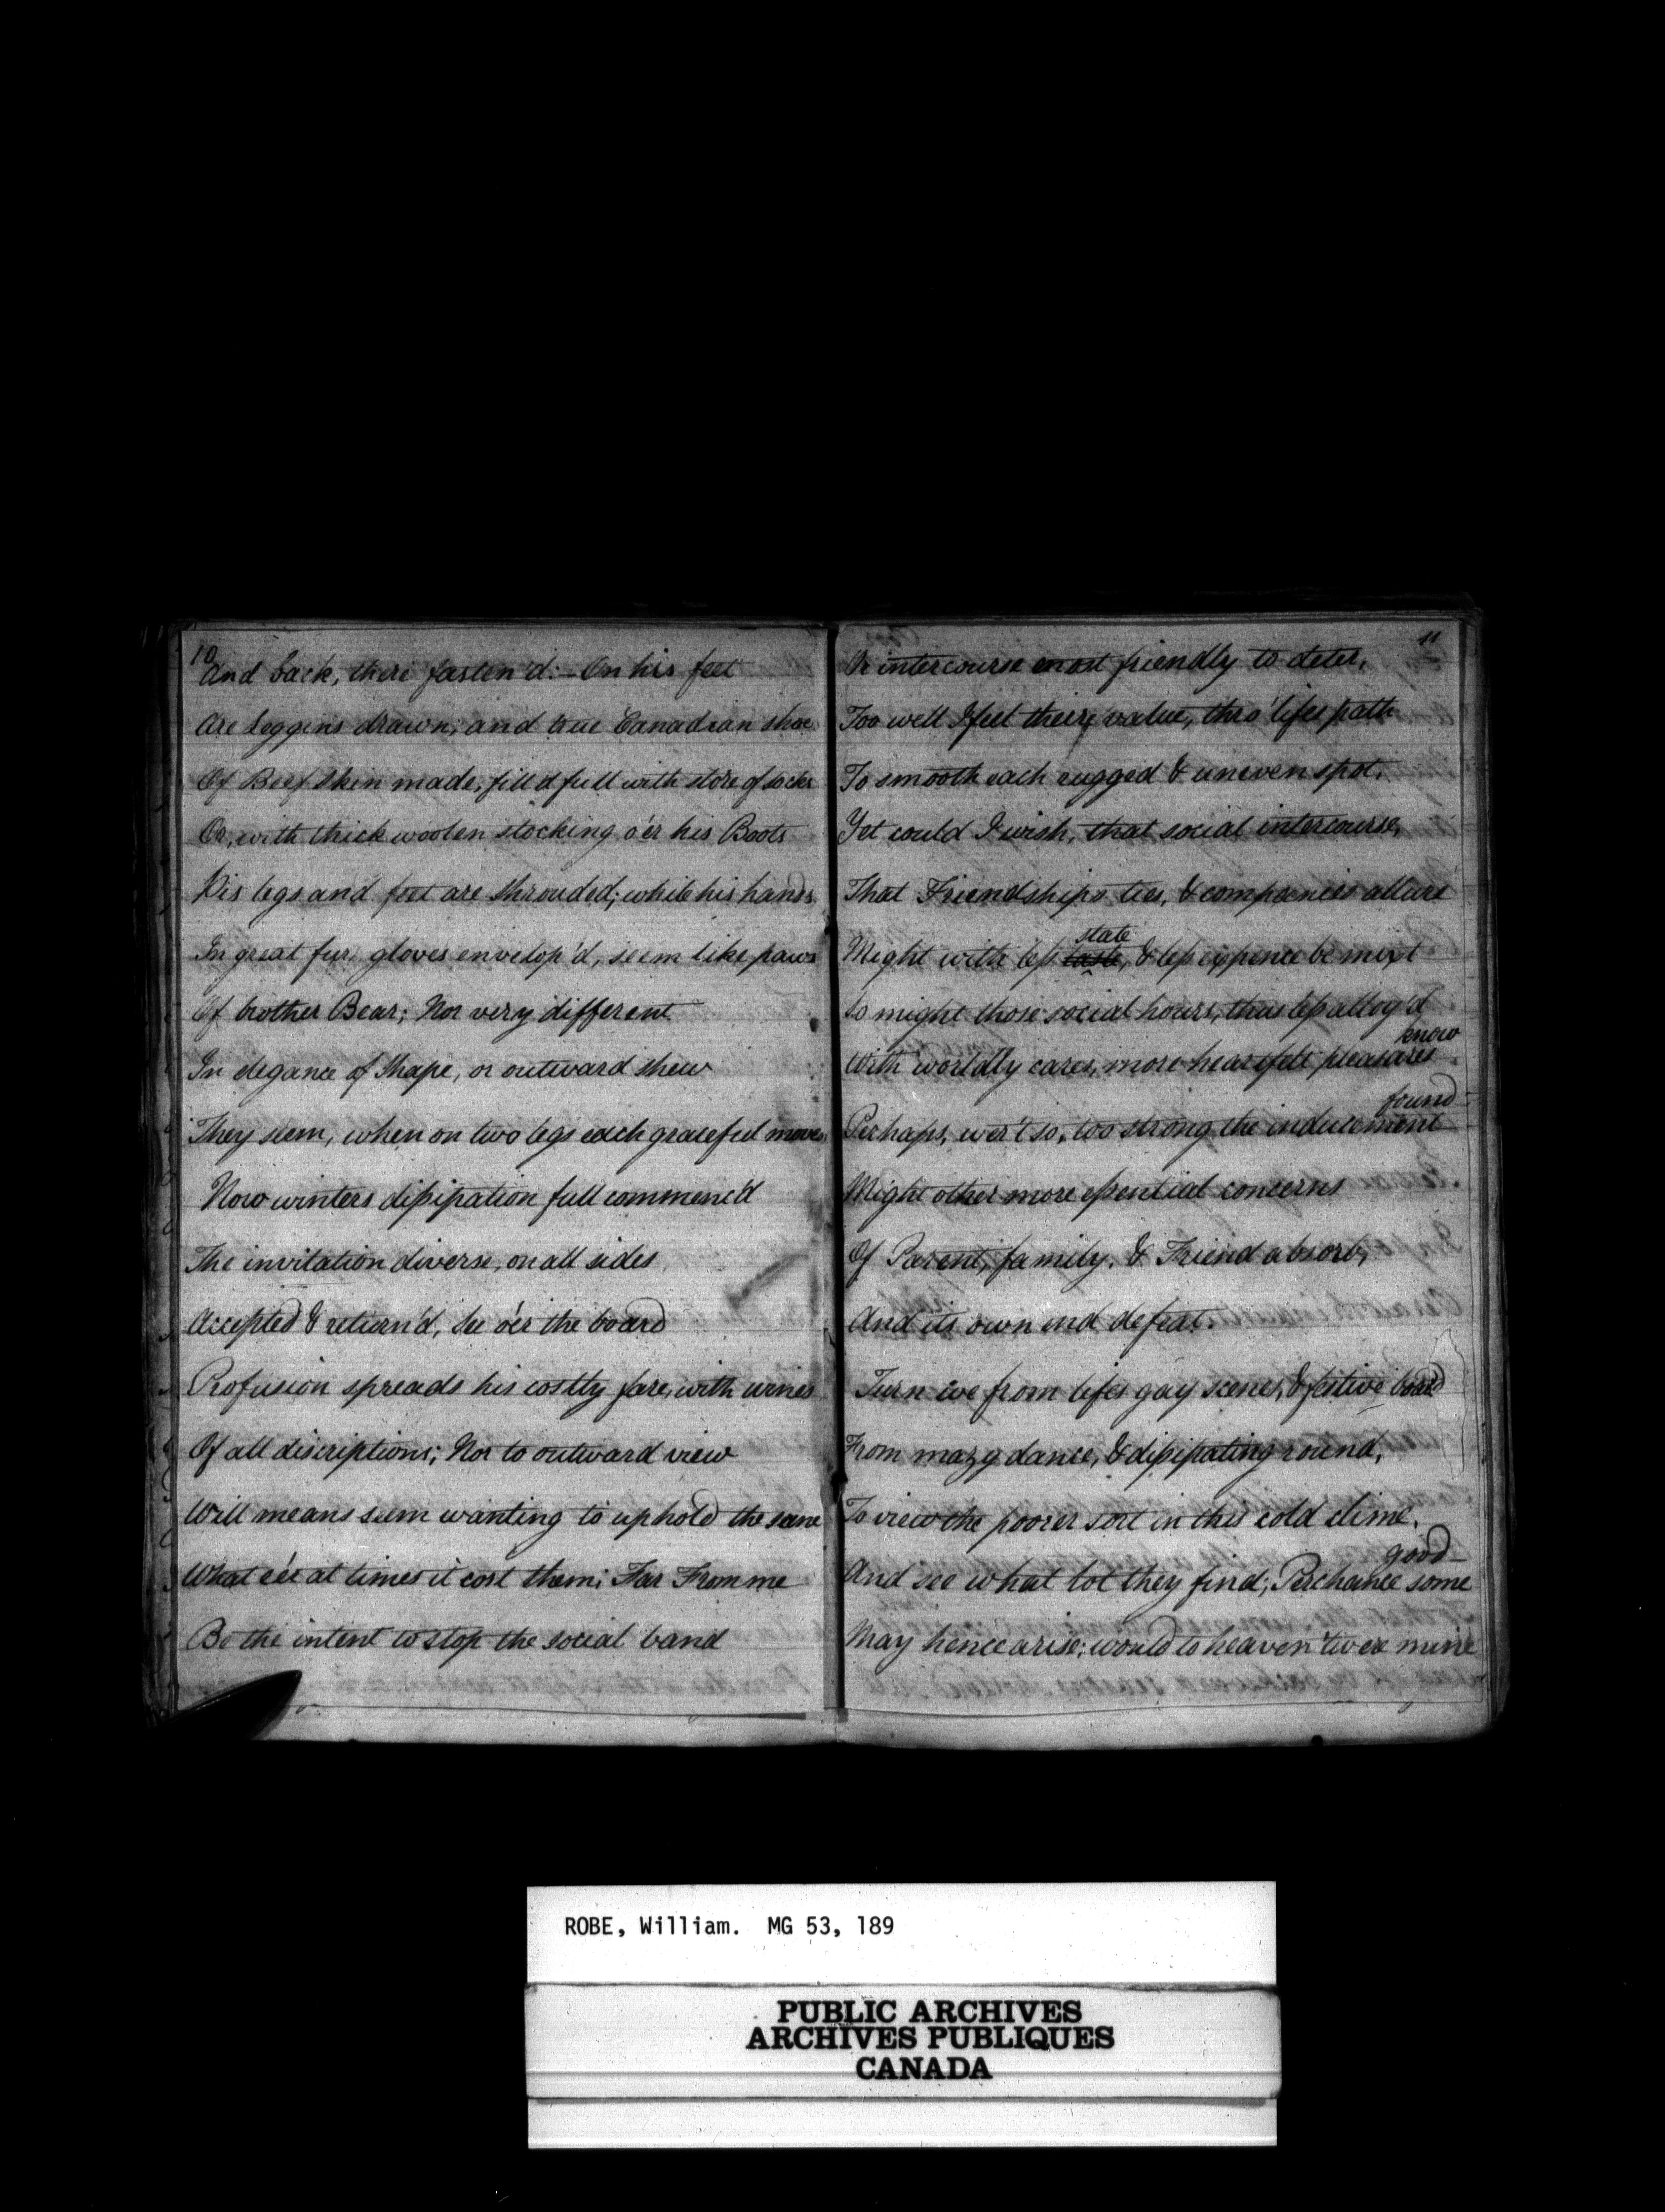 10
And back, there fasten'd:—On his feet
Are Leggins drawn; and true Canadian shoe
Of Beef Skin made, fill'd full with store of socks
Or, with thick woolen stocking o'er his Boots
His legs and feet are Shrouded; while his hands
In great fur gloves envelop'd, seem like paws
Of brother Bear; Nor very different
In elegance of Shape, or outward shew
They seem, when on two legs each graceful moves
Now winters dissipation full commenc'd
The invitation diverse, on all sides
Accepted & return'd, See o'er the board
Profusion spreads his costly fare, with wines
Of all discriptions; Nor to outward view
Will means seem wanting to uphold the scene
What e'er at times it cost them; Far From me
Be the intent to stop the social band
11
Or intercourse most friendly to deter,
Too well I feel theire value, thro' lifes path
To smooth each rugged & uneven spot.
Yet could I wish, that social intercourse,
That Friendships ties, & companies allure
state
Might with less taste, & less expence be mixt
So might those social hours, thus less alloy'd
know
With worldly cares, more heartfelt pleasures
found
Perhaps, wer't so, too strong the inducement
Might other more essential concerns
Of Parent, family, & Friend absorb,
And its own end defeat.
Turn we from lifes gay scenes, & festive board
From mazy dance, & dissipating round,
To view the poorer sort in this cold clime,
good
And see what lot they find; Perchance some
May hence arise; would to heaven 'twere mine
ROBE, William. MG 53, 189
PUBLIC ARCHIVES
ARCHIVES PUBLIQUES
CANADA